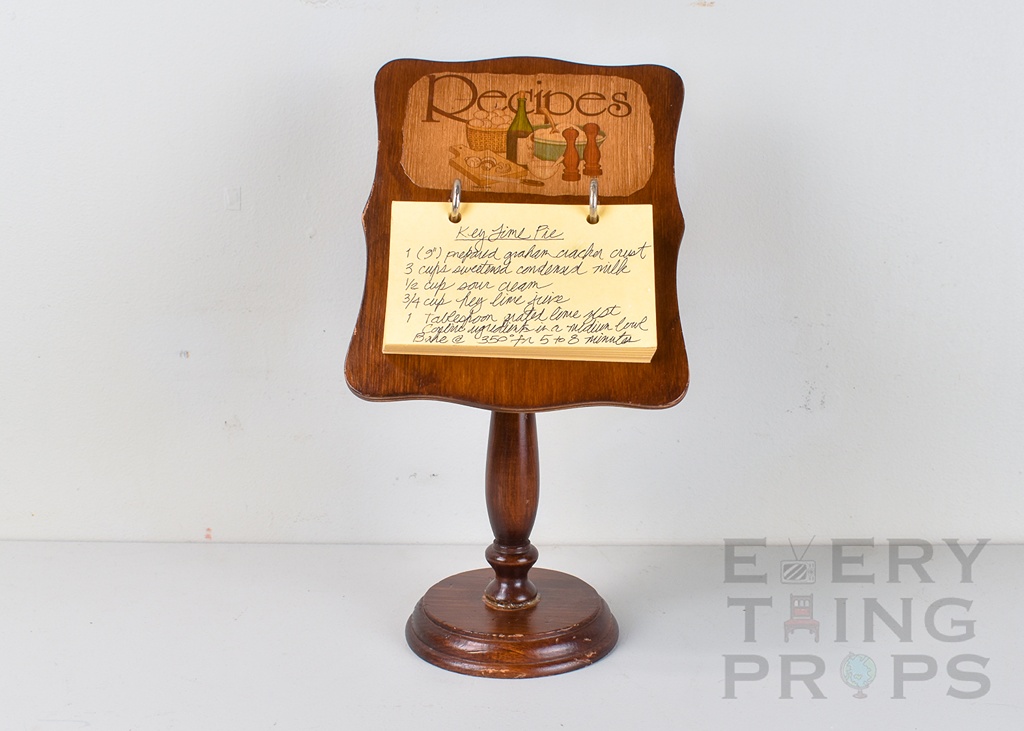 Recipes
Key Lime Pie
1 (9") prepared graham cracker crust
3 cups sweetened condensed milk
1/2 cup sour cream
3/4 cup key lime juice
1 Tablespoon grated lime zest
Combine ingredients in a medium bowl
Bake @ 350° for 5 to 8 minutes
EVERY
THING
PROPS